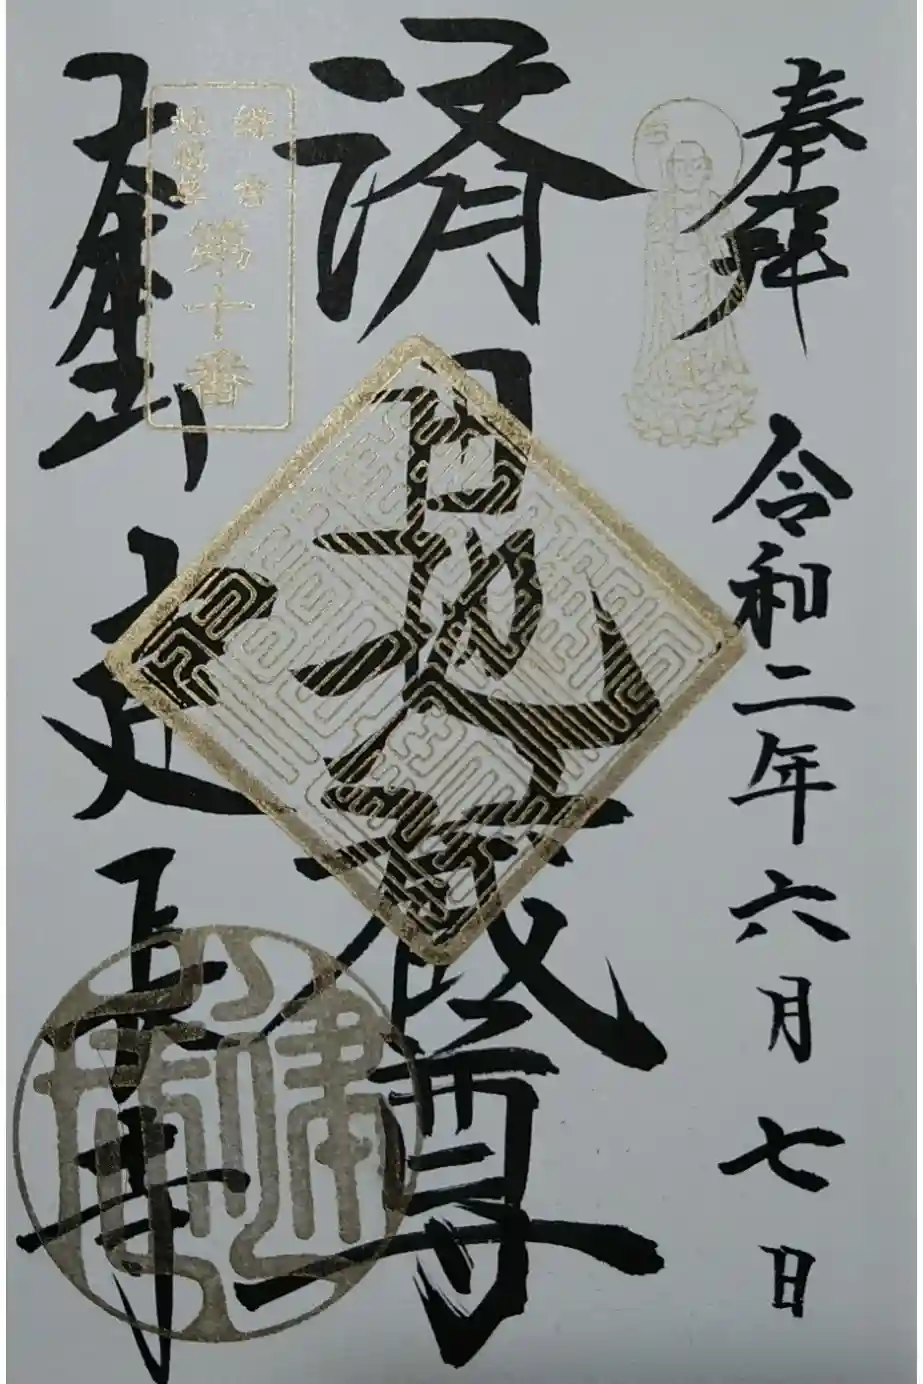 奉拝 令和二年六月七日
済田地蔵尊
鎌倉
地蔵尊
第十番
建長寺